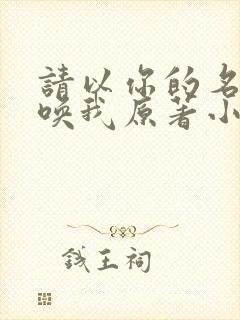 請以你的名
喚我原著小
錢王祠